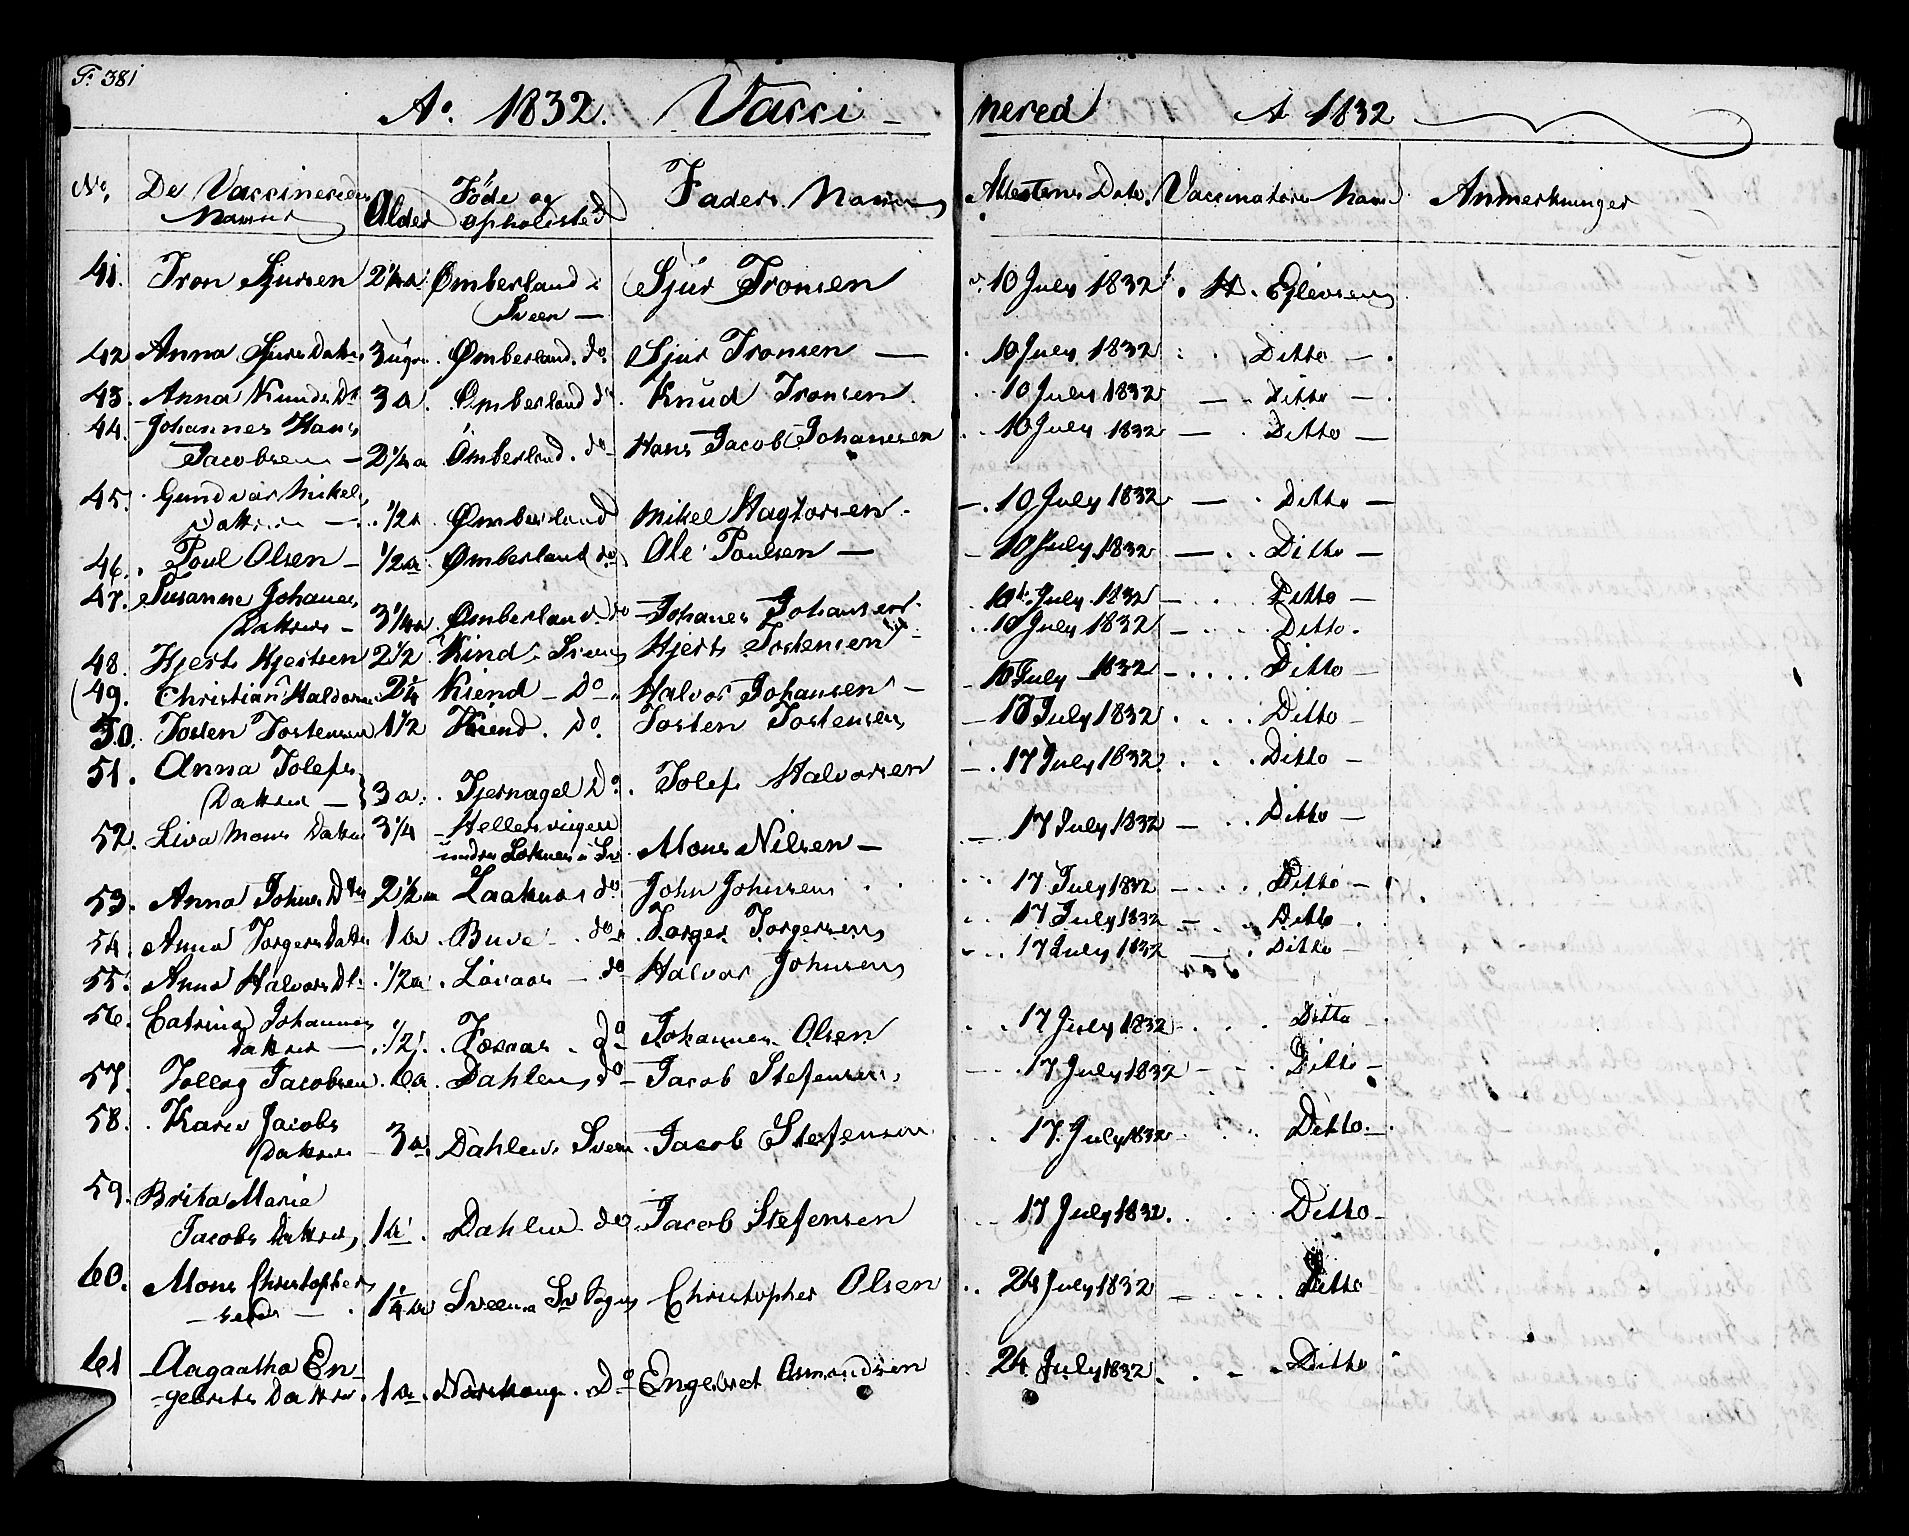 F. 381
Ao. 1832. Vacci- nered A 1832
No. De Vaccineredes Navne Alder Føde og opholdsted Faders Navn Attestens Date. Vaccinatørs Navn Anmerkninger
41. Tron Sjursen 2 1/4 a Ømberland i Sveen — Sjur Tronsen 10 July 1832 H. Ejlevsen
42 Anna Sjurs Datter 3 uger Ømberland. do. Sjur Tronsen — 10 July 1832 Ditto —
43. Anna Knuds Dr 3 a. Ømberland do. Knud Tronsen. 10 July 1832 — Ditto —
44. Johannes Hans
Jacobsen — 2 1/4 a Ømberland. do Hans Jacob Johanesen 10 July 1832 — Ditto —
45. Gundvør Mikels
Dattren —. 1/2 a. Ømberland Mikel Hagtorsen. —. 10 July 1832 — Ditto —
46. Poul Olsen — 1/2 a Ømberland do. Ole Poulsen — 10 July 1832 — Ditto —
47. Susanne Johanes
Dattren — 3 1/4 a Ømberland. do Johanes Johansen. 10 July 1832 — Ditto —
48. Hjert Hjertsen 2 1/2 Kind i Sveen Hjert Tostensen 10 July 1832 — Ditto.
49. Christian Haldorsen 2 1/4 Kiend — Do Halvor Johansen — 10 July 1832 — Ditto —
50. Tosten Tostensen 1 1/2 Kiend. Do. Tosten Tostensen — 10 July 1832 Ditto —
51. Anna Tolefs
Dattren — 3 a. Tjernagel Do. Tolef Halvorsen 17 July 1832. Ditto —
52. Siva Mons Datter 3 1/4 Hellersvigen
under Lokness i Sv. Mons Nilsen — 17 July 1832 — Ditto —
53. Anna Johns Dtr 2 1/2 a Laaknes do John Johnsen 17 July 1832 — Ditto —
54. Anna Torgers Datter 1 a Buve — do Torger Torgersen 17 July 1832 — Ditto
55. Anna Halvors Dr. 1/2 a Løvaas — do Halvor Johnsen 17 July 1832 Ditto —
56. Catrina Johannes
Dattren — 1/2. Fosaas. do Johannes Olsen 17 July 1832 Ditto
57. Tollag Jacobsen. 6 a Dahlen do Jacob Stefensen 17 July 1832 — Ditto —
58. Karen Jacobs
Dattren — 3 a. Dahlen. Sveen Jacob Stefensen 17 July 1832 Ditto. —
59. Brita Marie
Jacobs Dattren 1 a. Dahlen do Jacob Stefensen 17 July 1832. Ditto —
60. Mons Christopher
— sen — 1 1/4 a Sveen i Sv Sogn Christopher Olsen 24 July 1832 — Ditto
61 Aagaatha En-
gebrets Dattren 1 a. Do Engebret Asmundsen 24 July 1832. Ditto